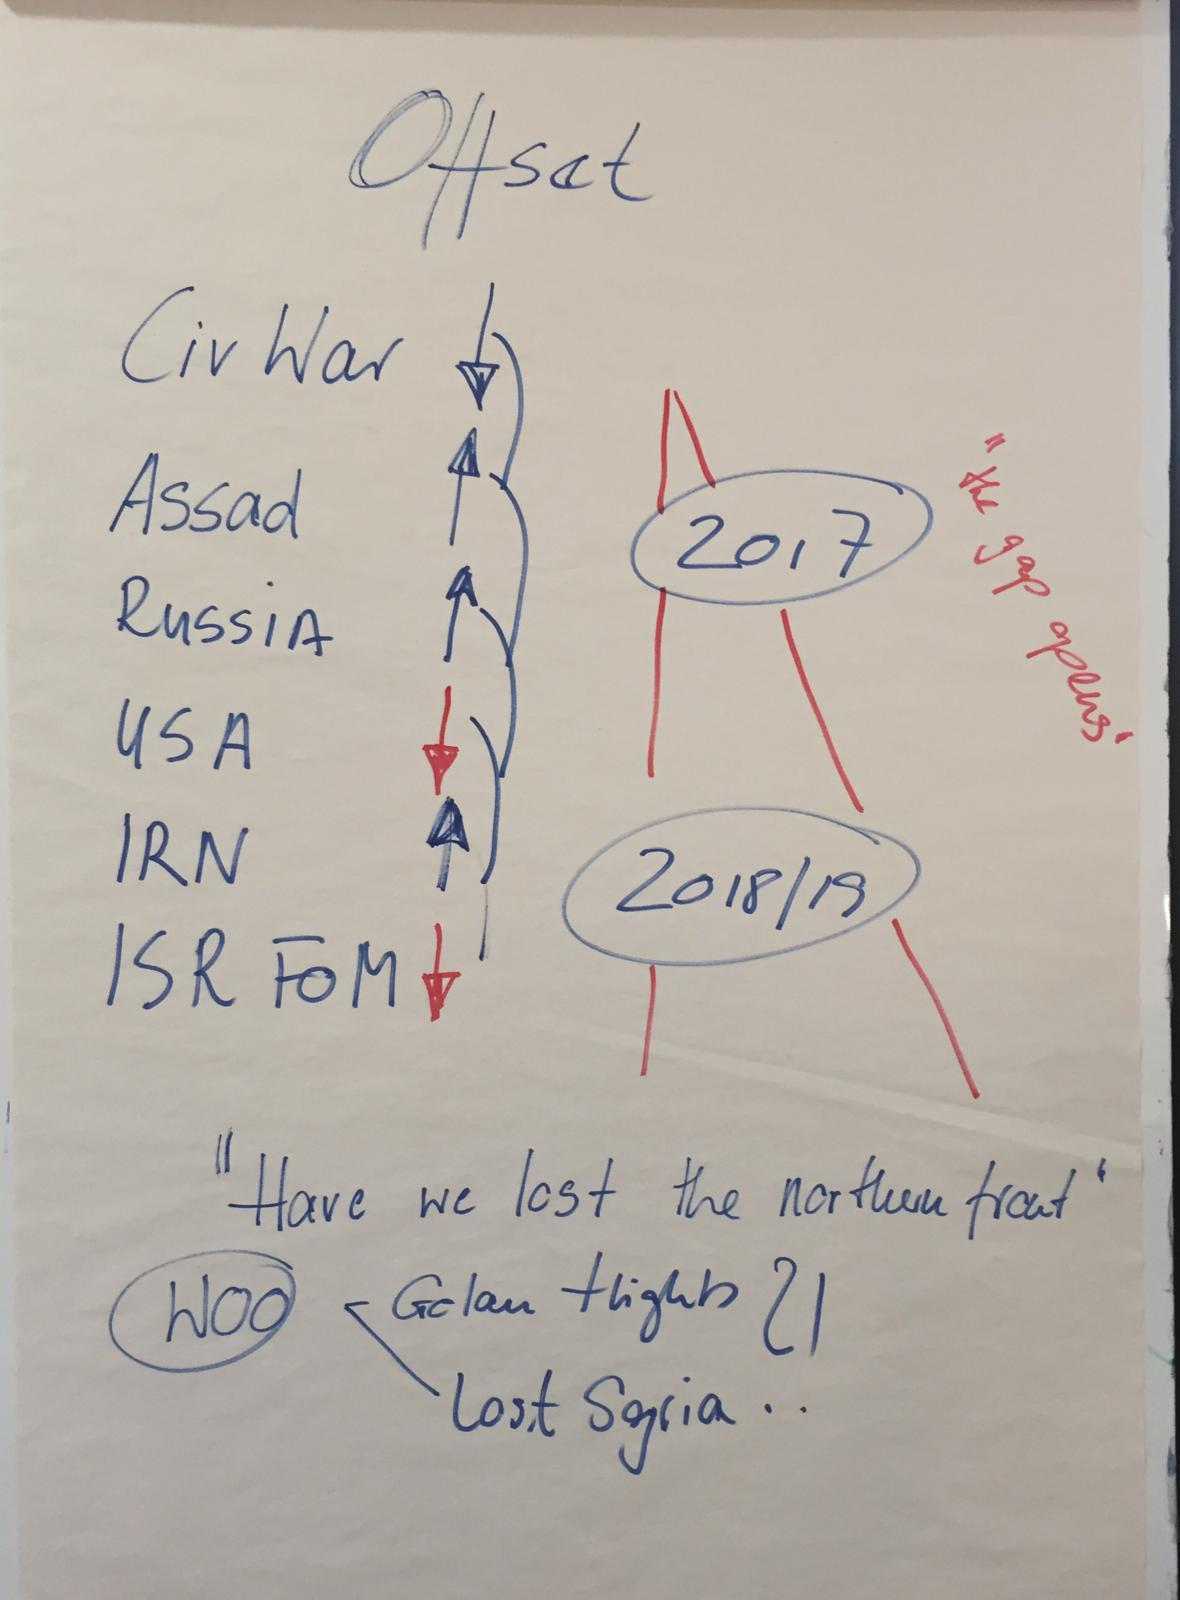 Offset
Civ War
Assad
Russia
USA
IRN
ISR FoM
2017
2018/19
"the gap opens"
"Have we lost the northern front"
WOO
Golan flights ?!
Lost Syria ..